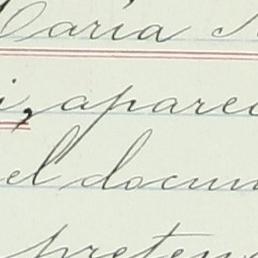 María
i, aparec
el docum
preten